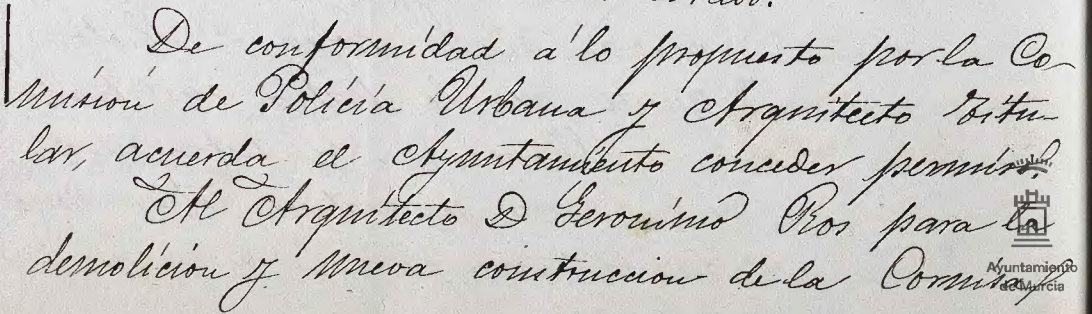 De conformidad á lo propuesto por la Co-
mision de Policía Urbana y Arquitecto titu-
lar, acuerda el Ayuntamiento conceder permiso.
Al Arquitecto D Geronimo Ros para la
demolicion y nueva construccion de la Cornisa,
Ayuntamiento
de Murcia